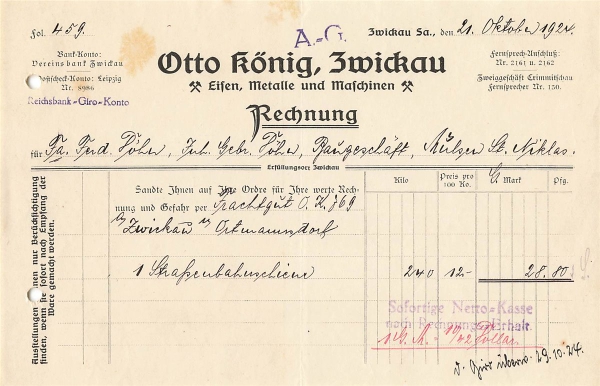 Fol. 459.
A.-G.
Zwickau Sa., den 21. Oktober 1924.
Bank-Konto:
Vereinsbank Zwickau
Postscheck-Konto: Leipzig
Nr. 8986
Reichsbank-Giro-Konto
Otto König, Zwickau
Eisen, Metalle und Maschinen
Fernsprech-Anschluß:
Nr. 2161 u. 2162
Zweiggeschäft Crimmitschau
Fernsprecher Nr. 150.
Rechnung
für Fa. Ferd. Döhn, Inh. Gebr. Döhn, Baugeschäft, Mülsen St. Niklas.
Erfüllungsort Zwickau
Sandte Ihnen auf Ihre Ordre für Ihre werte Rechnung
und Gefahr per Frachtgut O.K. 869
Kilo
Preis pro 100 Ko.
G Mark
Pfg.
Zwickau Ortmannsdorf
1 Straßenbahnschiene 240 12.- 28.80
Sofortige Netto-Kasse
nach Rechnungs-Erhalt.
1 G. M. = 10/42 Dollar.
d. Giro überw. 29.10.24.
Ausstellungen können nur Berücksichtigung
finden, wenn sie sofort nach Empfang der
Ware gemacht werden.